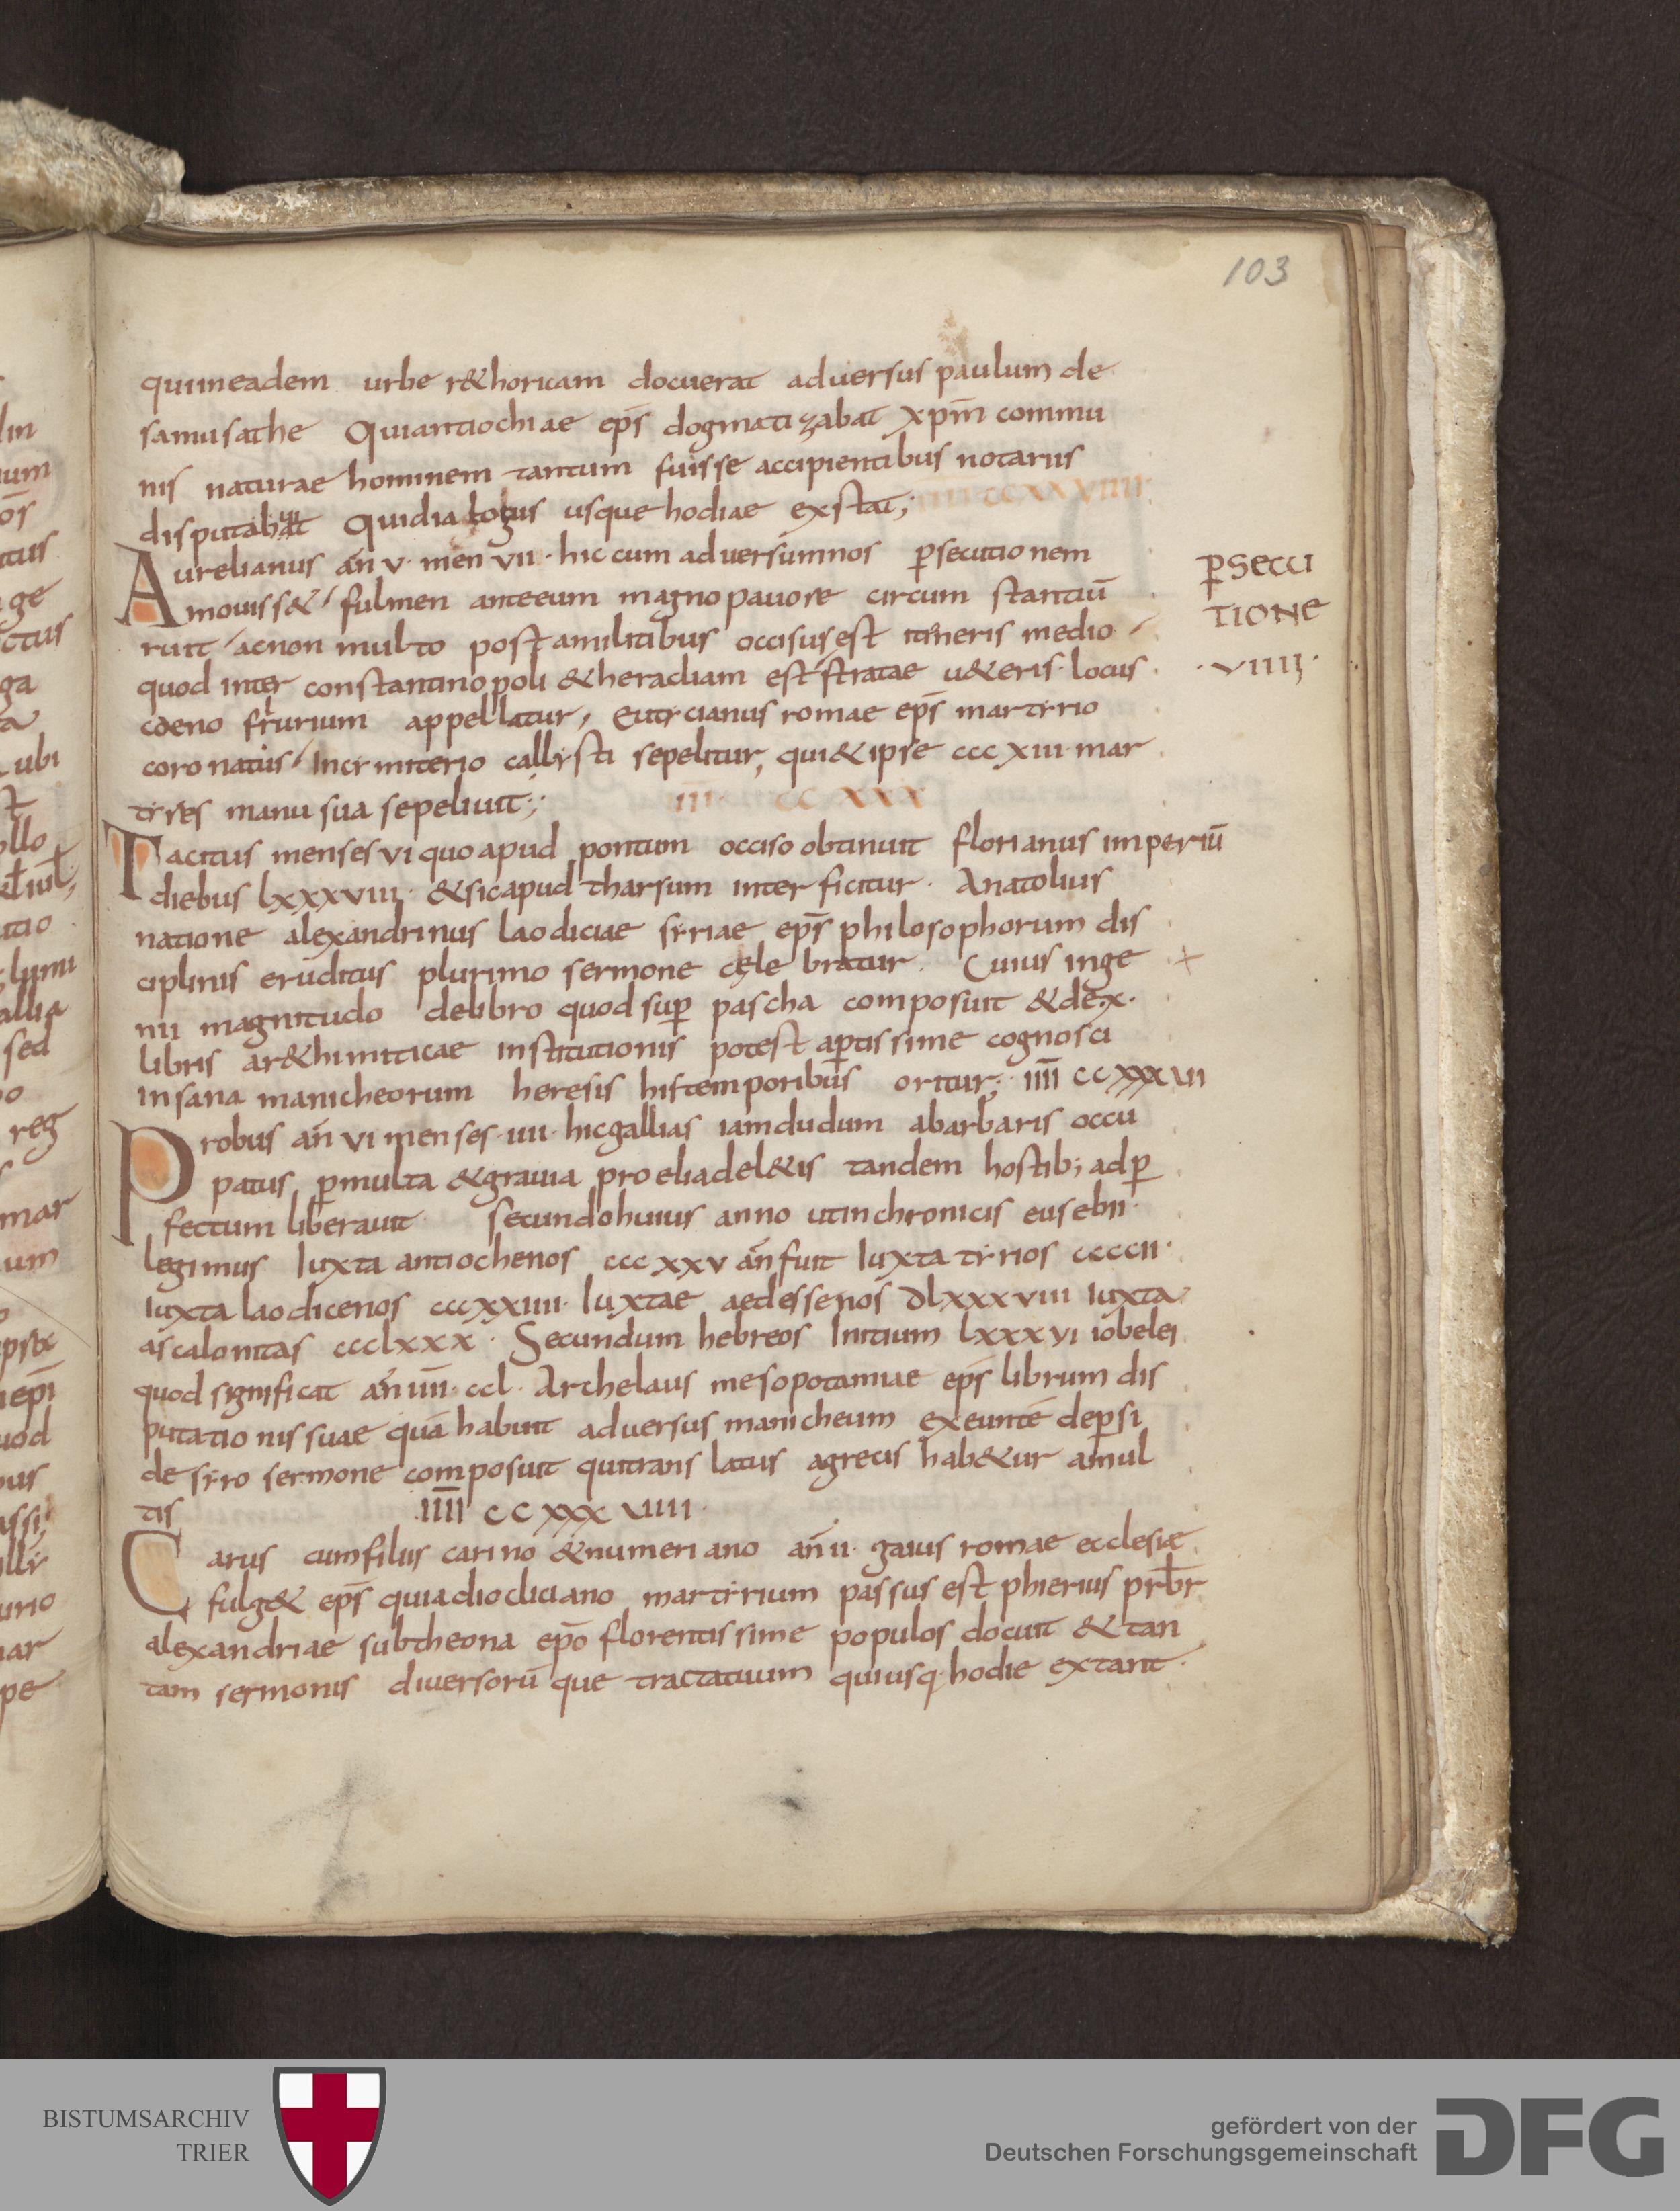 103
quiineadem urbe r&horicam docuerat adversus paulum de
samusathe Quiantiochiae ep̄s dogmatizabat xp̄m commu
nis naturae hominem tantum fuisse accipientibus notariis
disputabat Quidialogus usquehodiae exstat;
Aurelianus an̄ v· men vii· hiccum adversumnos p̱secutionem
movisset &' fulmen anteeum magnopavore circum stantiū
ruit acnon multo postamilitibus occisusest itineris medio
quod inter constantinopoli &heracliam est stratae u&eris· locus
coeno frurium appellatur, Eutycianus romae ep̄s martyrio
coronatus Incymiterio callysti sepelitur, qui&ipse ccc xiii· mar
tyres manu sua sepelivit;
Tacitus menses vi quoapud pontum occiso obtinuit florianus imperiū
diebus lxxxviiii· &sicapud tharsum interficitur· Anatolius
natione alexandrinus laodiciae syriae ep̄s philosophorum dis
ciplinis eruditus plurimo sermone celebratur· Cuius inge
nii magnitudo delibro quod sup̱ pascha composuit &de·x·
libris ar&himiticae institutionis potest ap̱tissime cognosci
insana manicheorum heresis histemporibus oritur; īīīī ccxxxvii
Probus an̄ vi menses·iiii· hicgallias iamdudum abarbaris occu
patus p̱multa &gravia proeliadel&is tandem hostib; adp̱
fectum liberavit· secundohuius anno utinchronicis eusebii·
legimus Iuxta antiochenos cccxxv an̄ fuit Iuxta tyrios ccccii·
Iuxta laodicenos cccxxiiii· Iuxtae aedessenos dlxxxviii Iuxta
ascalonitas ccclxxx· Secundum hebreos Initium lxxxvi iobelei
quod significat an̄ īīīī· ccl· Archelaus mesopotamiae ep̄s librum dis
putationissuae quā habuit adversus manicheum exeuntē dep̱si
de syro sermone composuit quitrans latus agrecis hab&ur amul
tis īīīī ccxxxviiii·
Carus cumfiliis carino &numeriano an̄ ii· gaius romae ecclesiæ
fulg& ep̄s quiadiocliciano martyrium passus est phierius prb̄r
alexandriae subtheona ep̄o florentissime populos docuit &tan
tam sermonis diversorū que tractatuum quiusq; hodie extant·
p̱secu
tione
·viiii·
BISTUMSARCHIV
TRIER
gefördert von der
Deutschen Forschungsgemeinschaft
DFG